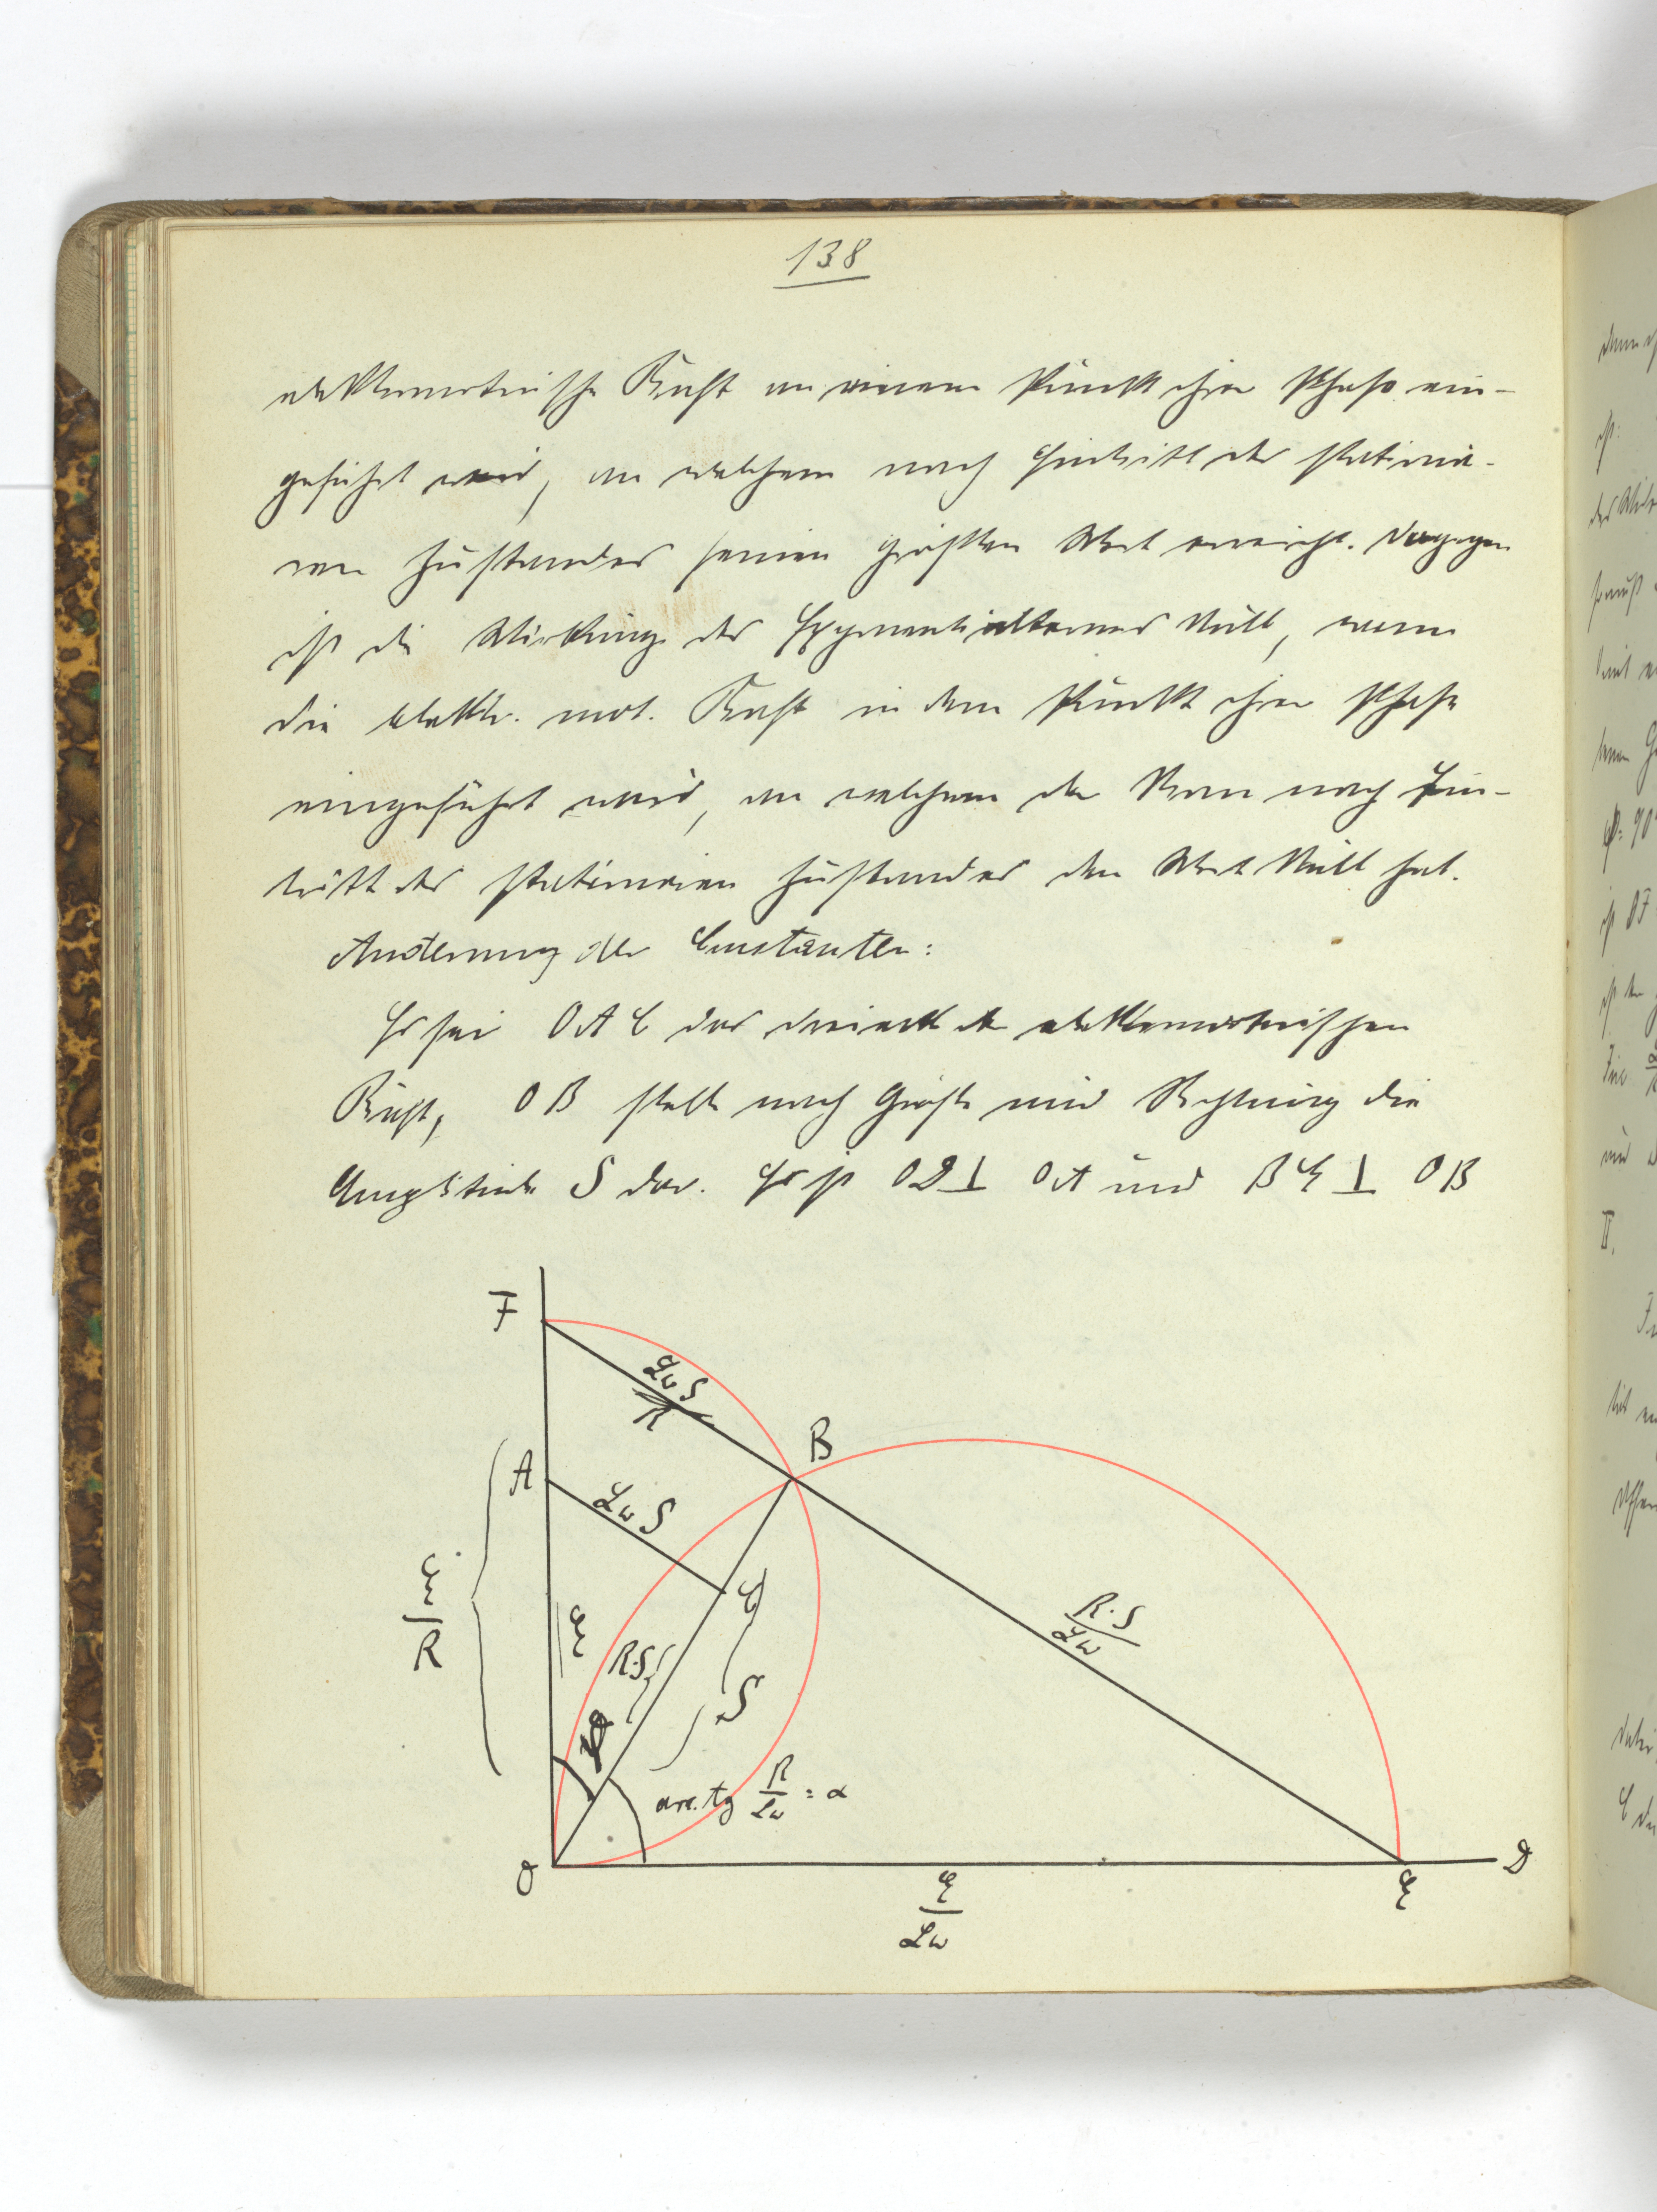 138
elektromotorische Kraft an einem Punkt ihrer Phase ein-
geführt wird, an welchem nach Eintritt des stationä-
ren Zustandes seinen größten Wert erreicht. Dagegen
ist die Wirkung des Exponentialternes Null, wenn
die elektr. mot. Kraft in dem Punkt ihrer Phase
eingeführt wird, an welchem der Strom nach Ein-
tritt des stationären Zustandes den Wert Null hat.
Änderung der Constanten:
Es sei OAC das Dreieck der elektromotorischen
Kraft, OB stelle nach Größe und Richtung die
Amplitude S dar. Es ist OD ⊥ OA und BE ⊥ OB
F
LωS
R
B
A
LωS
E
R
E
C
R·S
S
φ
R·S
Lω
arc. tg R/Lω = α
O
E
D
E
Lω